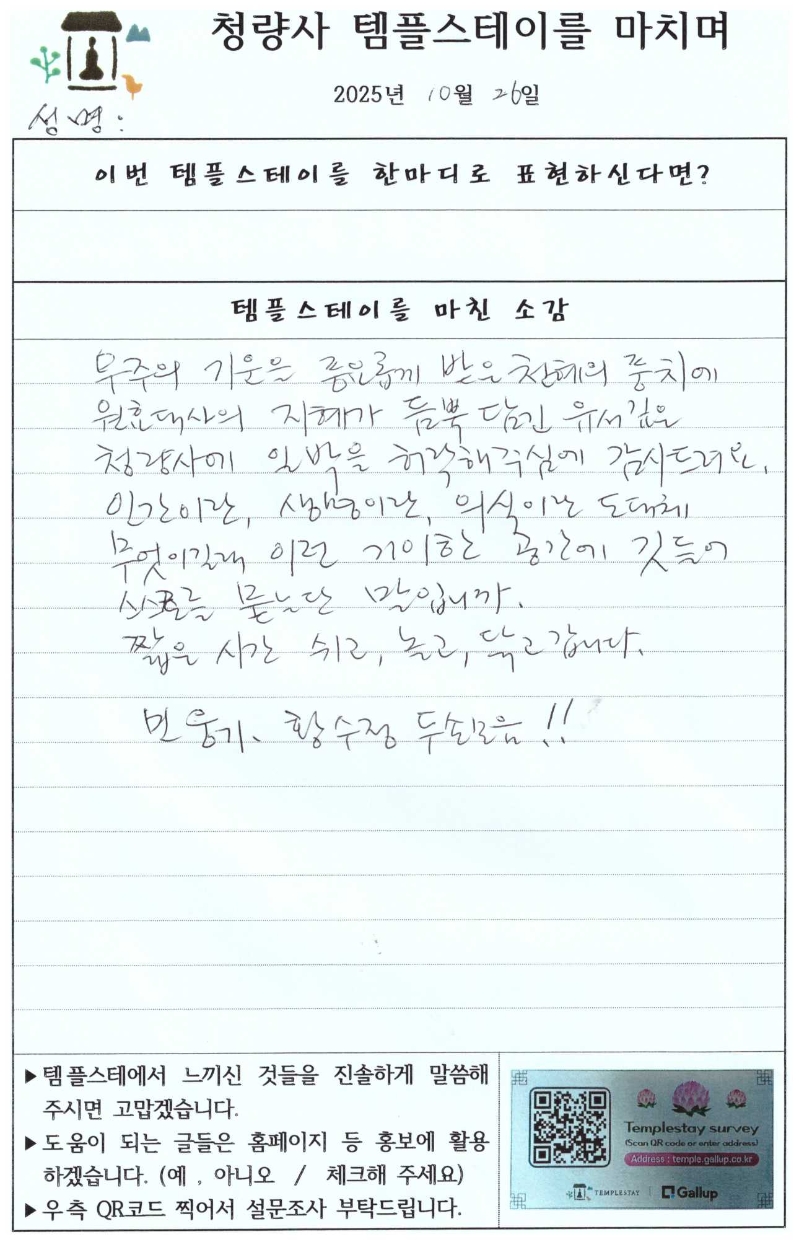 청량사 템플스테이를 마치며
2025년 10월 26일
성명:
이번 템플스테이를 한마디로 표현하신다면?
템플스테이를 마친 소감
우주의 기운을 풍요롭게 받은 천혜의 풍치에
원효대사의 지혜가 듬뿍 담긴 유서깊은
청량사에 일박을 허락해주심에 감사드려요.
인간이란, 생명이란, 의식이란 도대체
무엇이길래 이런 기이한 공간에 깃들어
스스로를 묻는단 말입니까.
짧은 시간 쉬고, 놀고, 닦고 갑니다.
민웅기, 황수정 두손모음!!
▶템플스테에서 느끼신 것들을 진솔하게 말씀해
주시면 고맙겠습니다.
▶도움이 되는 글들은 홈페이지 등 홍보에 활용
하겠습니다. (예 , 아니오 / 체크해 주세요)
▶우측 QR코드 찍어서 설문조사 부탁드립니다.
Templestay survey
(Scan QR code or enter address)
Address : temple.gallup.co.kr
TEMPLESTAY | Gallup